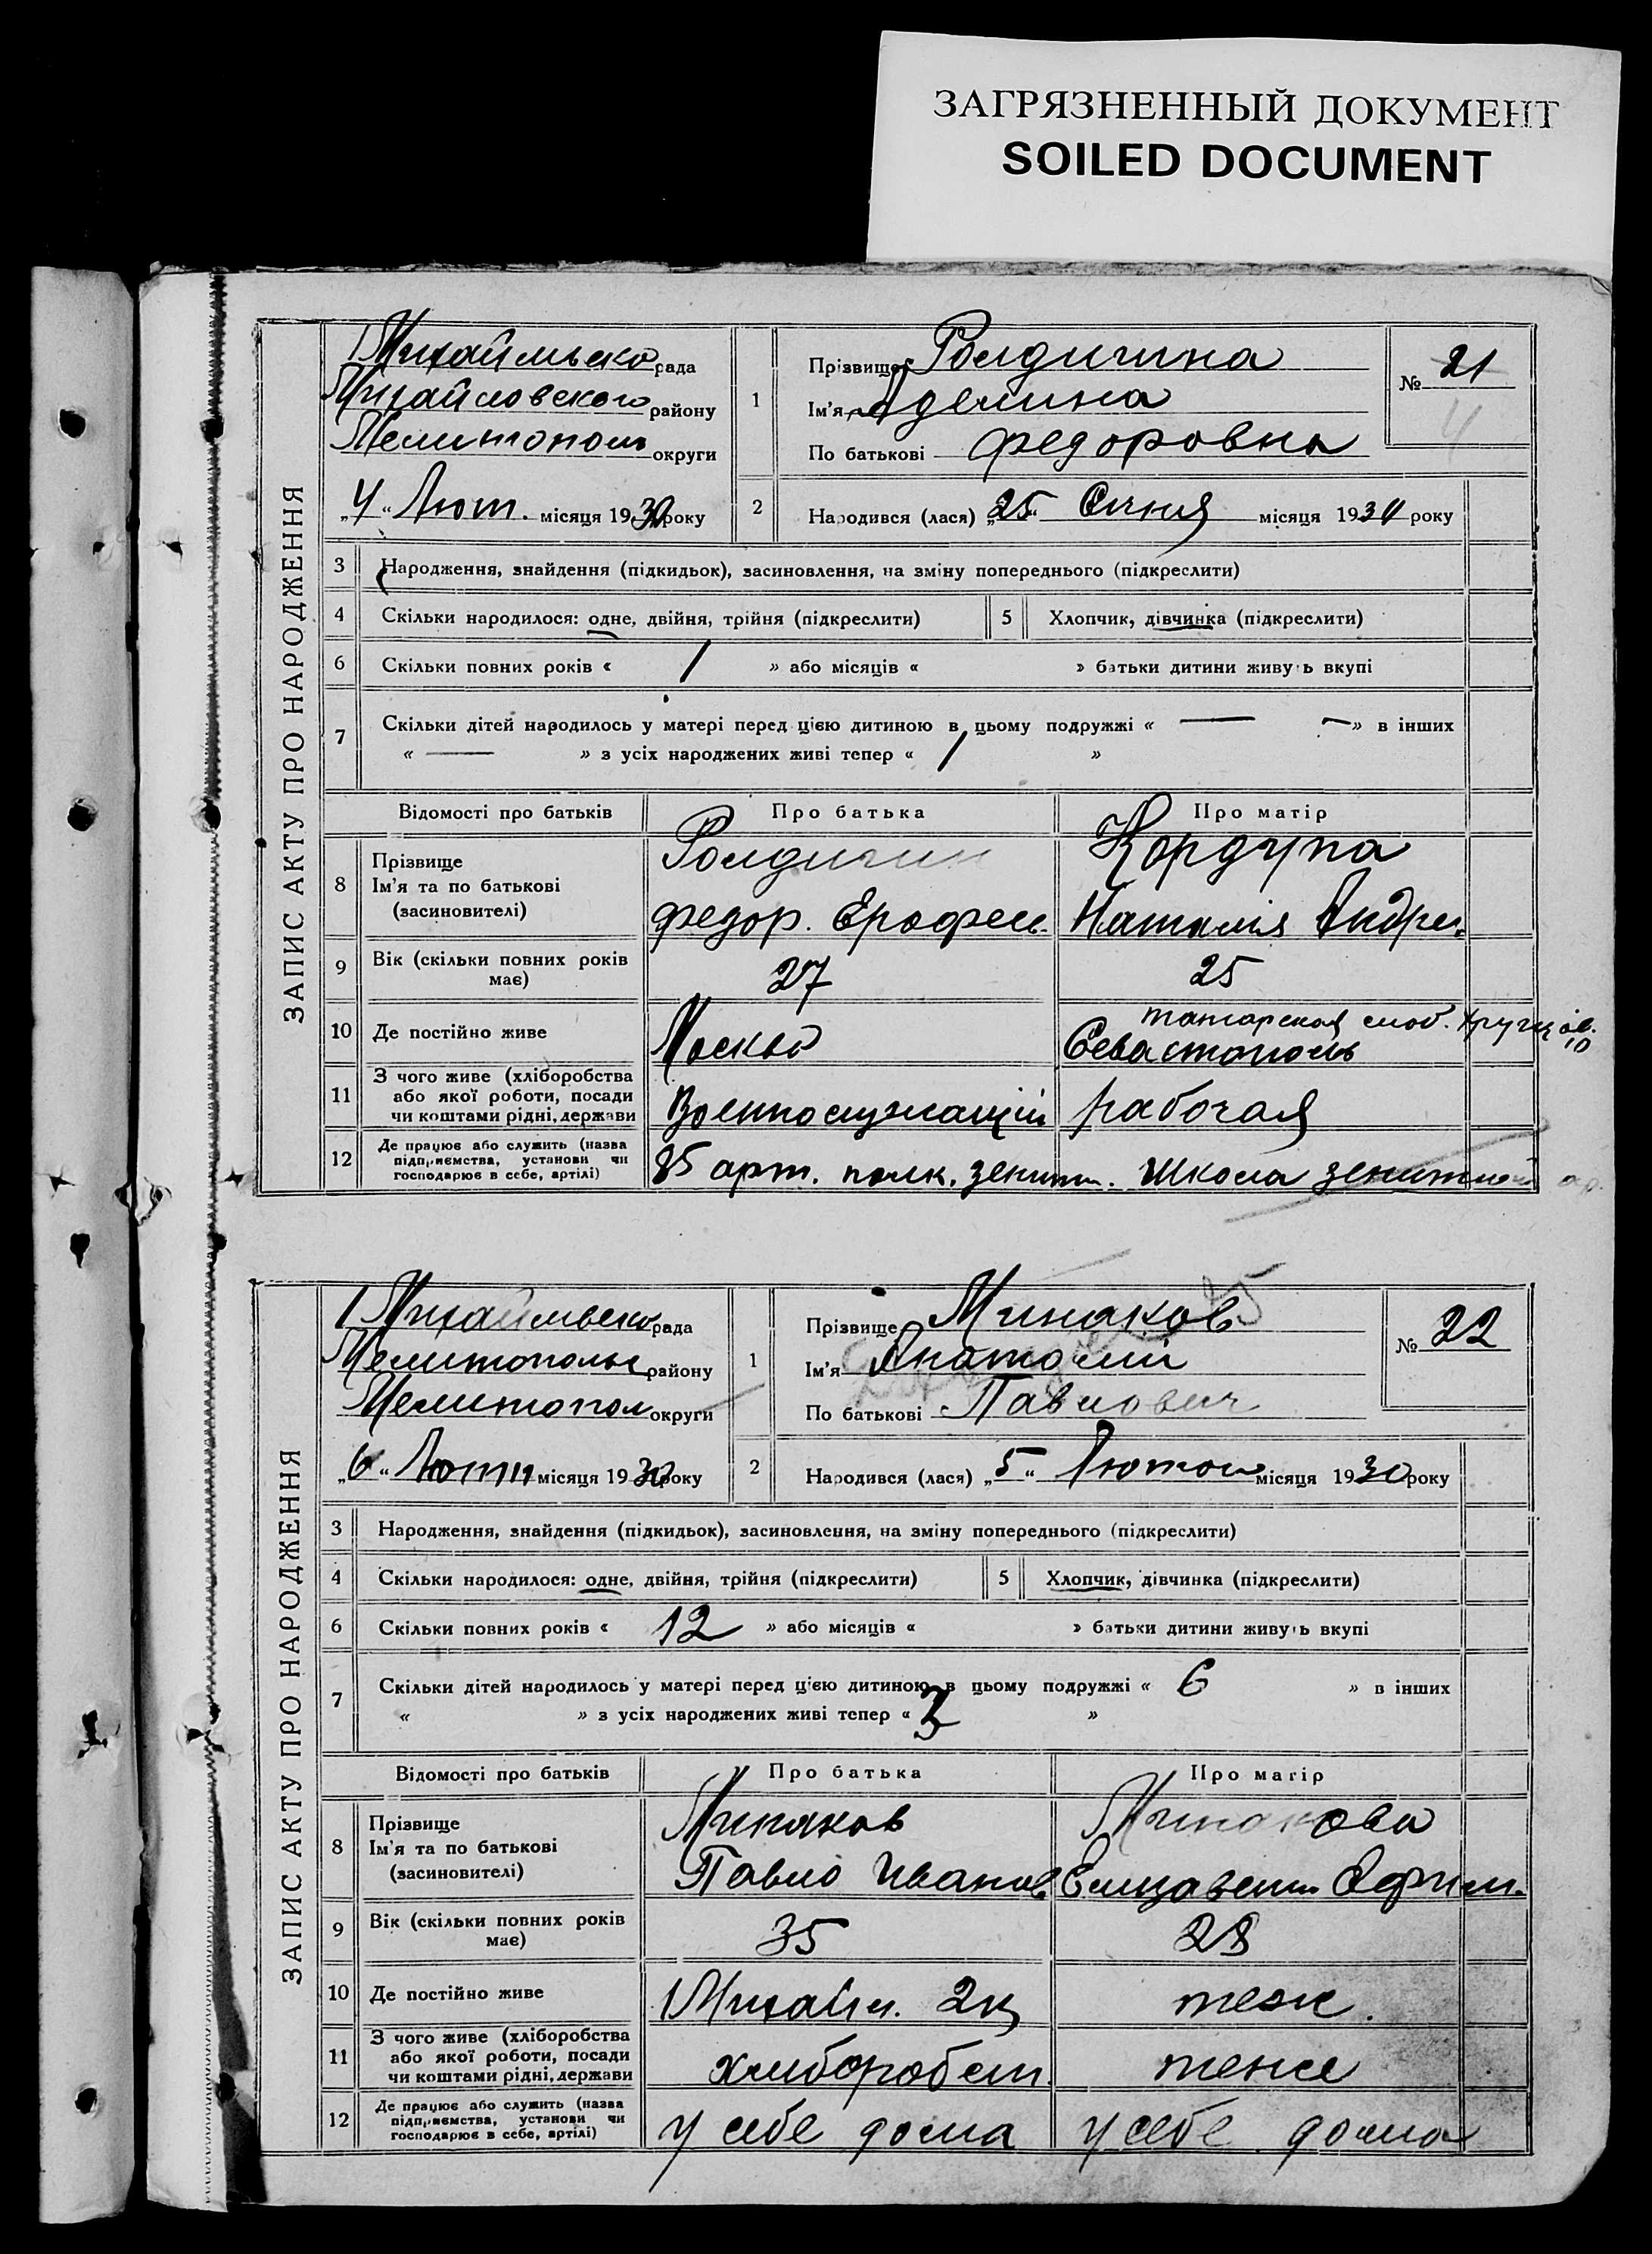 ЗАГРЯЗНЕННЫЙ ДОКУМЕНТ
SOILED DOCUMENT
ЗАПИС АКТУ ПРО НАРОДЖЕННЯ
рада
Михайловского району
Мелитополь округи
„4“ Лют. місяця 1930 року
1
Прізвище Ролдигина
Ім'я Аделина
По батькові Федоровна
№ 21
4
2
Народився (лася) „25“ Січня місяця 1930 року
3 Народження, знайдення (підкидьок), засиновлення, на зміну попереднього (підкреслити)
4 Скільки народилося: одне, двійня, трійня (підкреслити)
5 Хлопчик, дівчинка (підкреслити)
6 Скільки повних років « 1 » або місяців « » батьки дитини живуть вкупі
7 Скільки дітей народилось у матері перед цією дитиною в цьому подружжі « — — » в інших
« — » з усіх народжених живі тепер « 1 »
Відомості про батьків Про батька Про матір
8 Прізвище Ім'я та по батькові (засновителі)
Ролдигин
Федор. Ерофеев.
Кордупа
Наталія Андре.
9 Вік (скільки повних років має) 27 25
10 Де постійно живе Москва
татарская слоб.
Севастополь
11 З чого живе (хліборобства або якої роботи, посади чи коштами рідні, держави Военнослужащій рабочая
12 Де працює або служить (назва підприємства, установи чи господарює в себе, артілі) 85 арт. полк. зенитн. Школа зенитной ар.
ЗАПИС АКТУ ПРО НАРОДЖЕННЯ
рада
Мелитопольс району
Мелитопол округи
„6“ місяця 1930 року
1
Прізвище Минаков
Ім'я Анатолій
По батькові Павлович
№ 22
2
Народився (лася) „5“ Лютого місяця 1930 року
3 Народження, знайдення (підкидьок), засиновлення, на зміну попереднього (підкреслити)
4 Скільки народилося: одне, двійня, трійня (підкреслити)
5 Хлопчик, дівчинка (підкреслити)
6 Скільки повних років « 12 » або місяців « » батьки дитини живуть вкупі
7 Скільки дітей народилось у матері перед цією дитиною в цьому подружжі « 6 » в інших
« » з усіх народжених живі тепер « 3 »
Відомості про батьків Про батька Про матір
8 Прізвище Ім'я та по батькові (засиновителі)
Минаков
Павло Иванов
Минакова
Елизавета Ефим.
9 Вік (скільки повних років має) 35 28
10 Де постійно живе 1 Михайл. теж
11 З чого живе (хліборобства або якої роботи, посади чи коштами рідні, держави хлиборобст. теже
12 Де працює або служить (назва підприємства, установи чи господарює в себе, артілі) у себе дома у себе дома